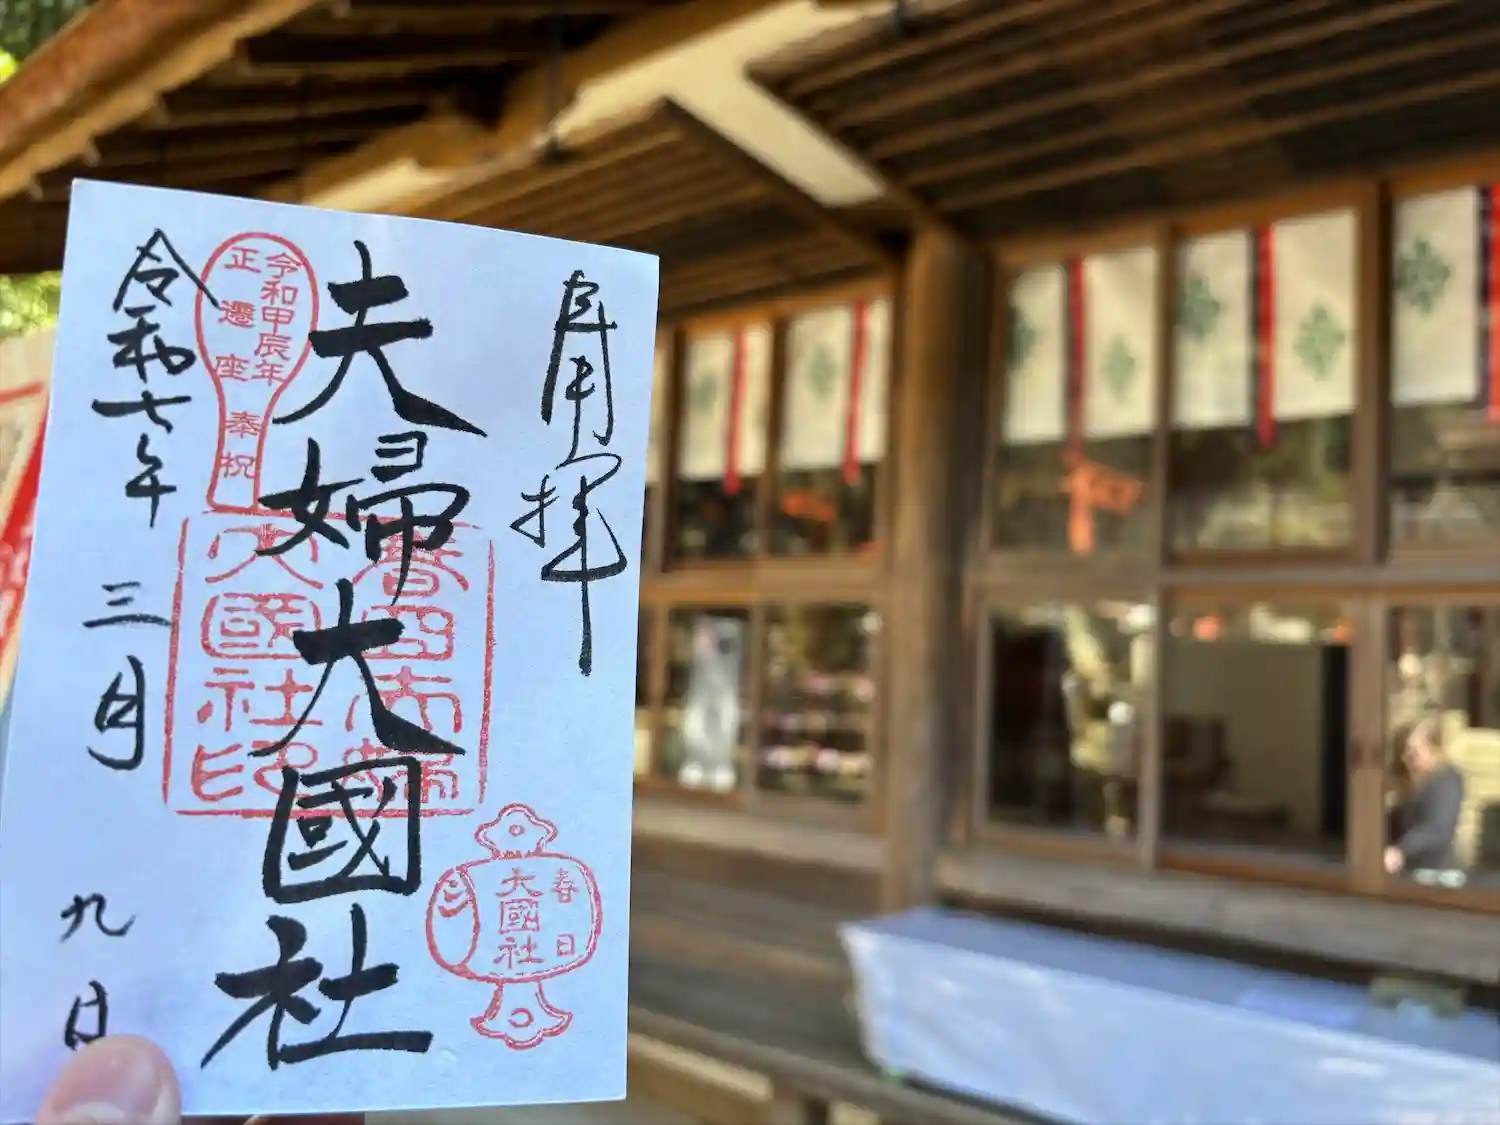 奉拝
夫婦大國社
令和甲辰年
正遷座奉祝
春日
大國社
大國社印
令和七年三月九日